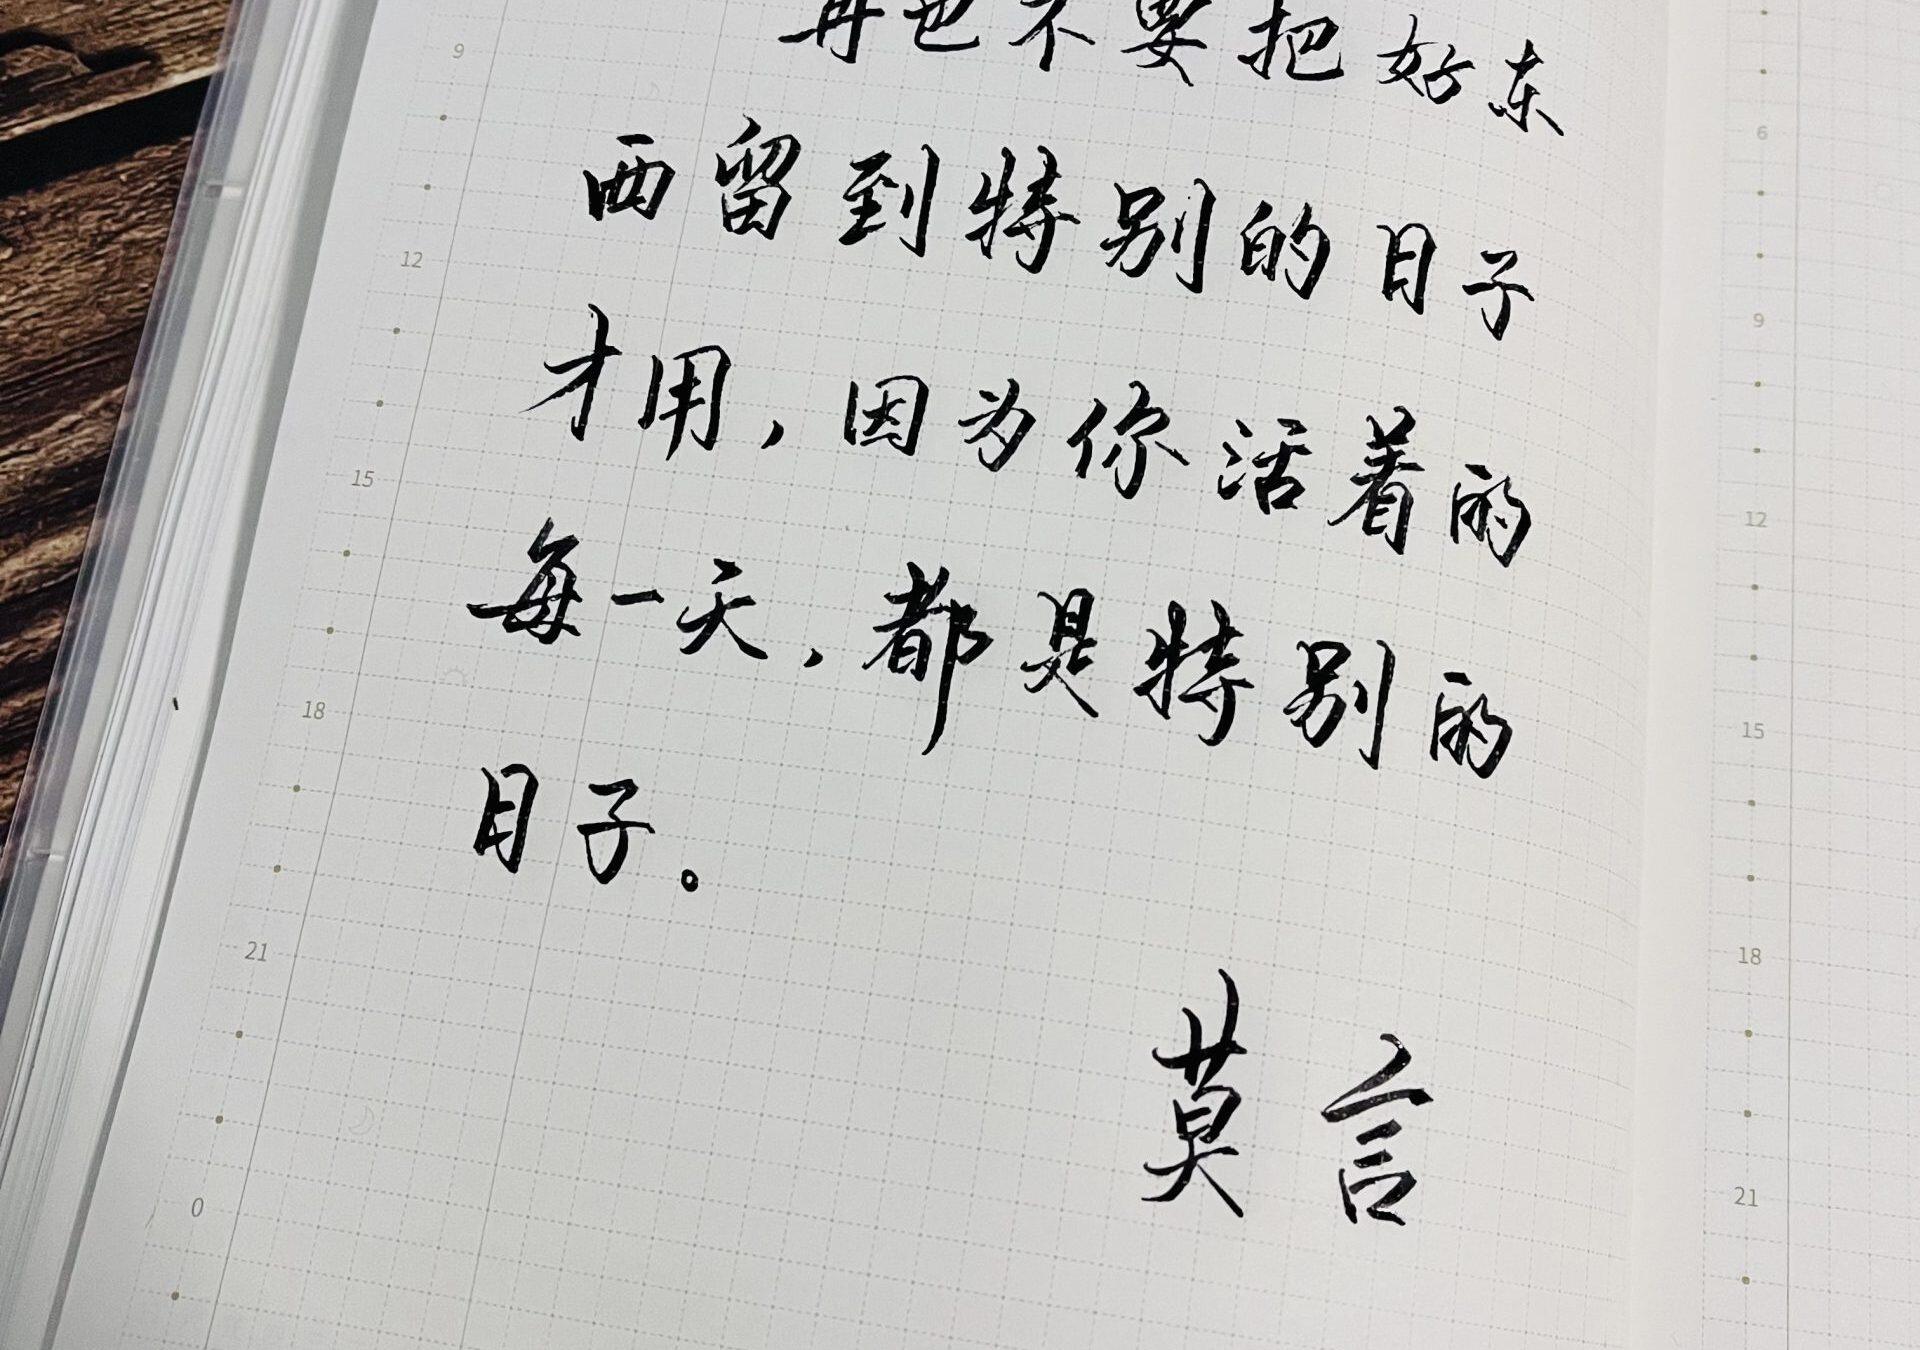 再也不要把好东
西留到特别的日子
才用，因为你活着的
每一天，都是特别的
日子。
莫言
9
12
15
18
21
0
6
9
12
15
18
21